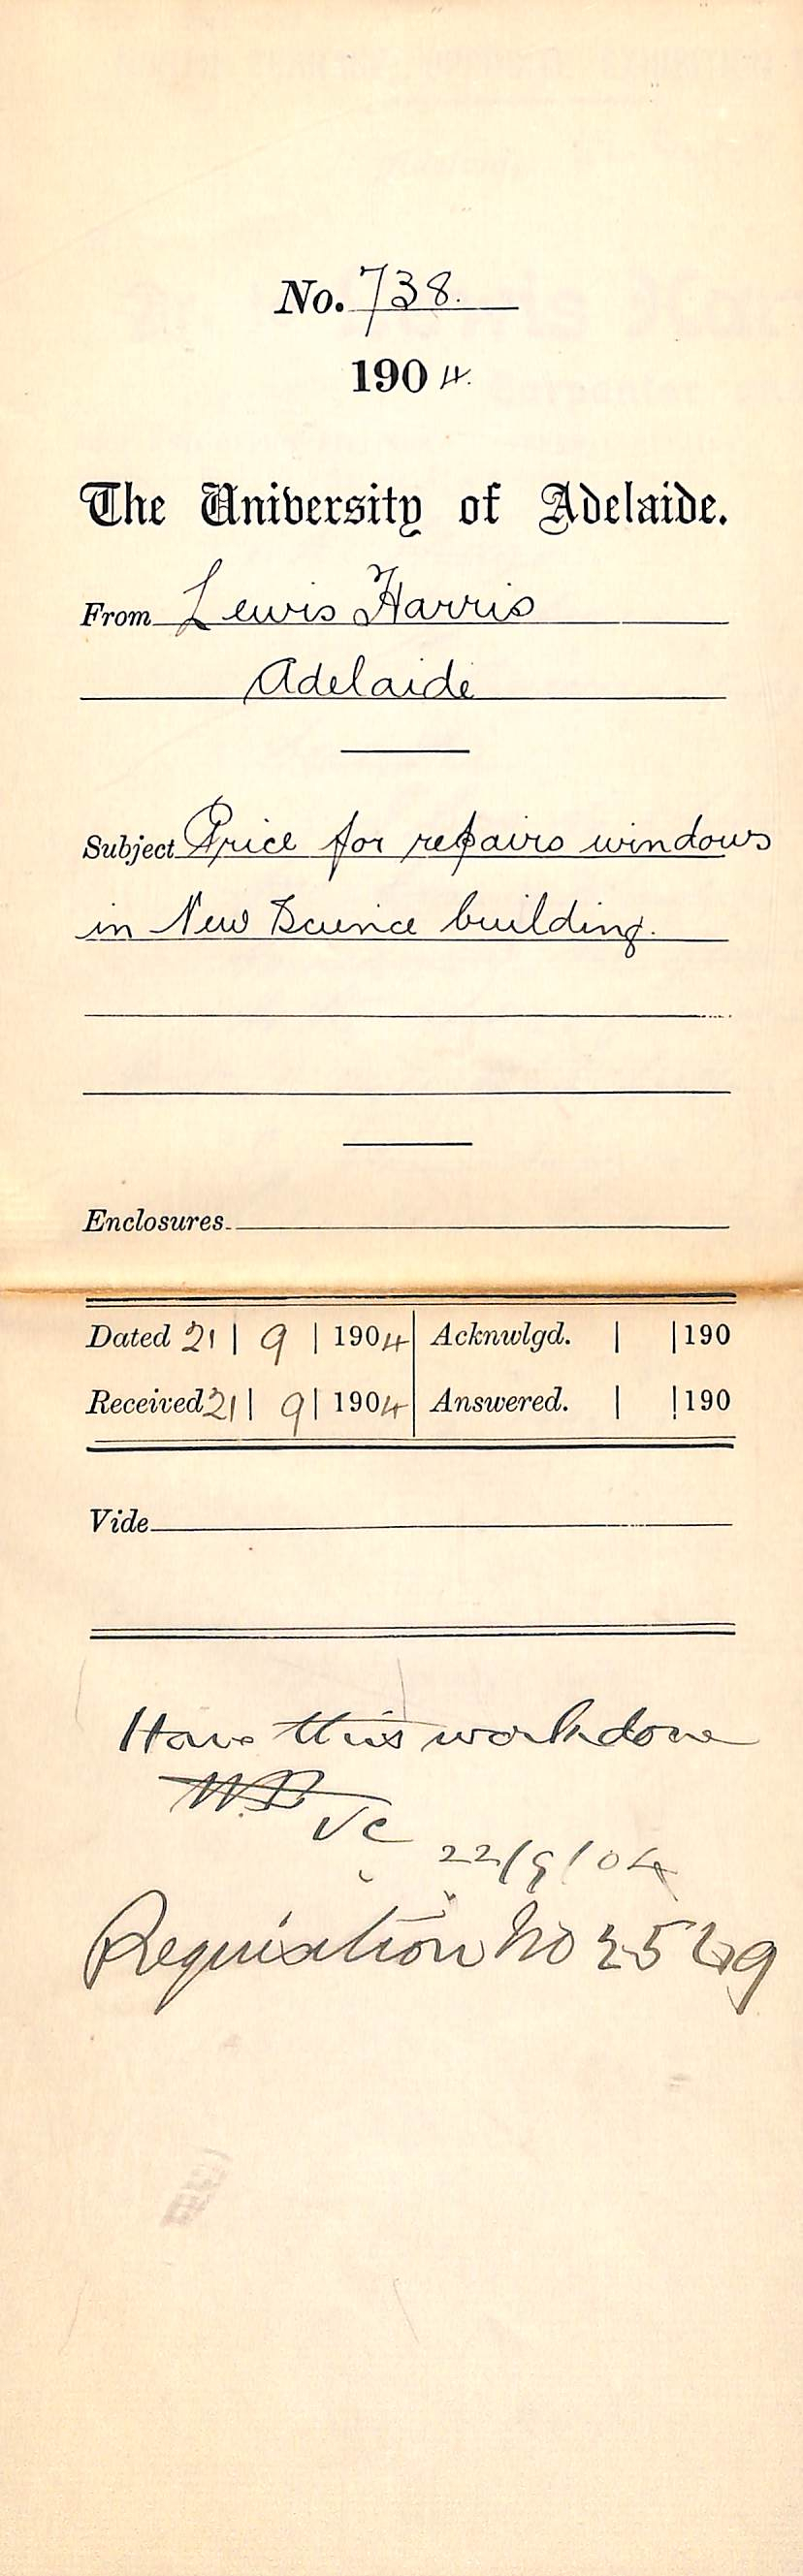 No. 738.
1904.
The University of Adelaide.
From Lewis Harris
Adelaide
Subject Price for repairs windows
in New Science building.
Enclosures
Dated 21 | 9 | 1904 Acknwlgd. | | 190
Received 21 | 9 | 1904 Answered. | | 190
Vide
Have this work done
VC 22/9/04
Requisition No 2549